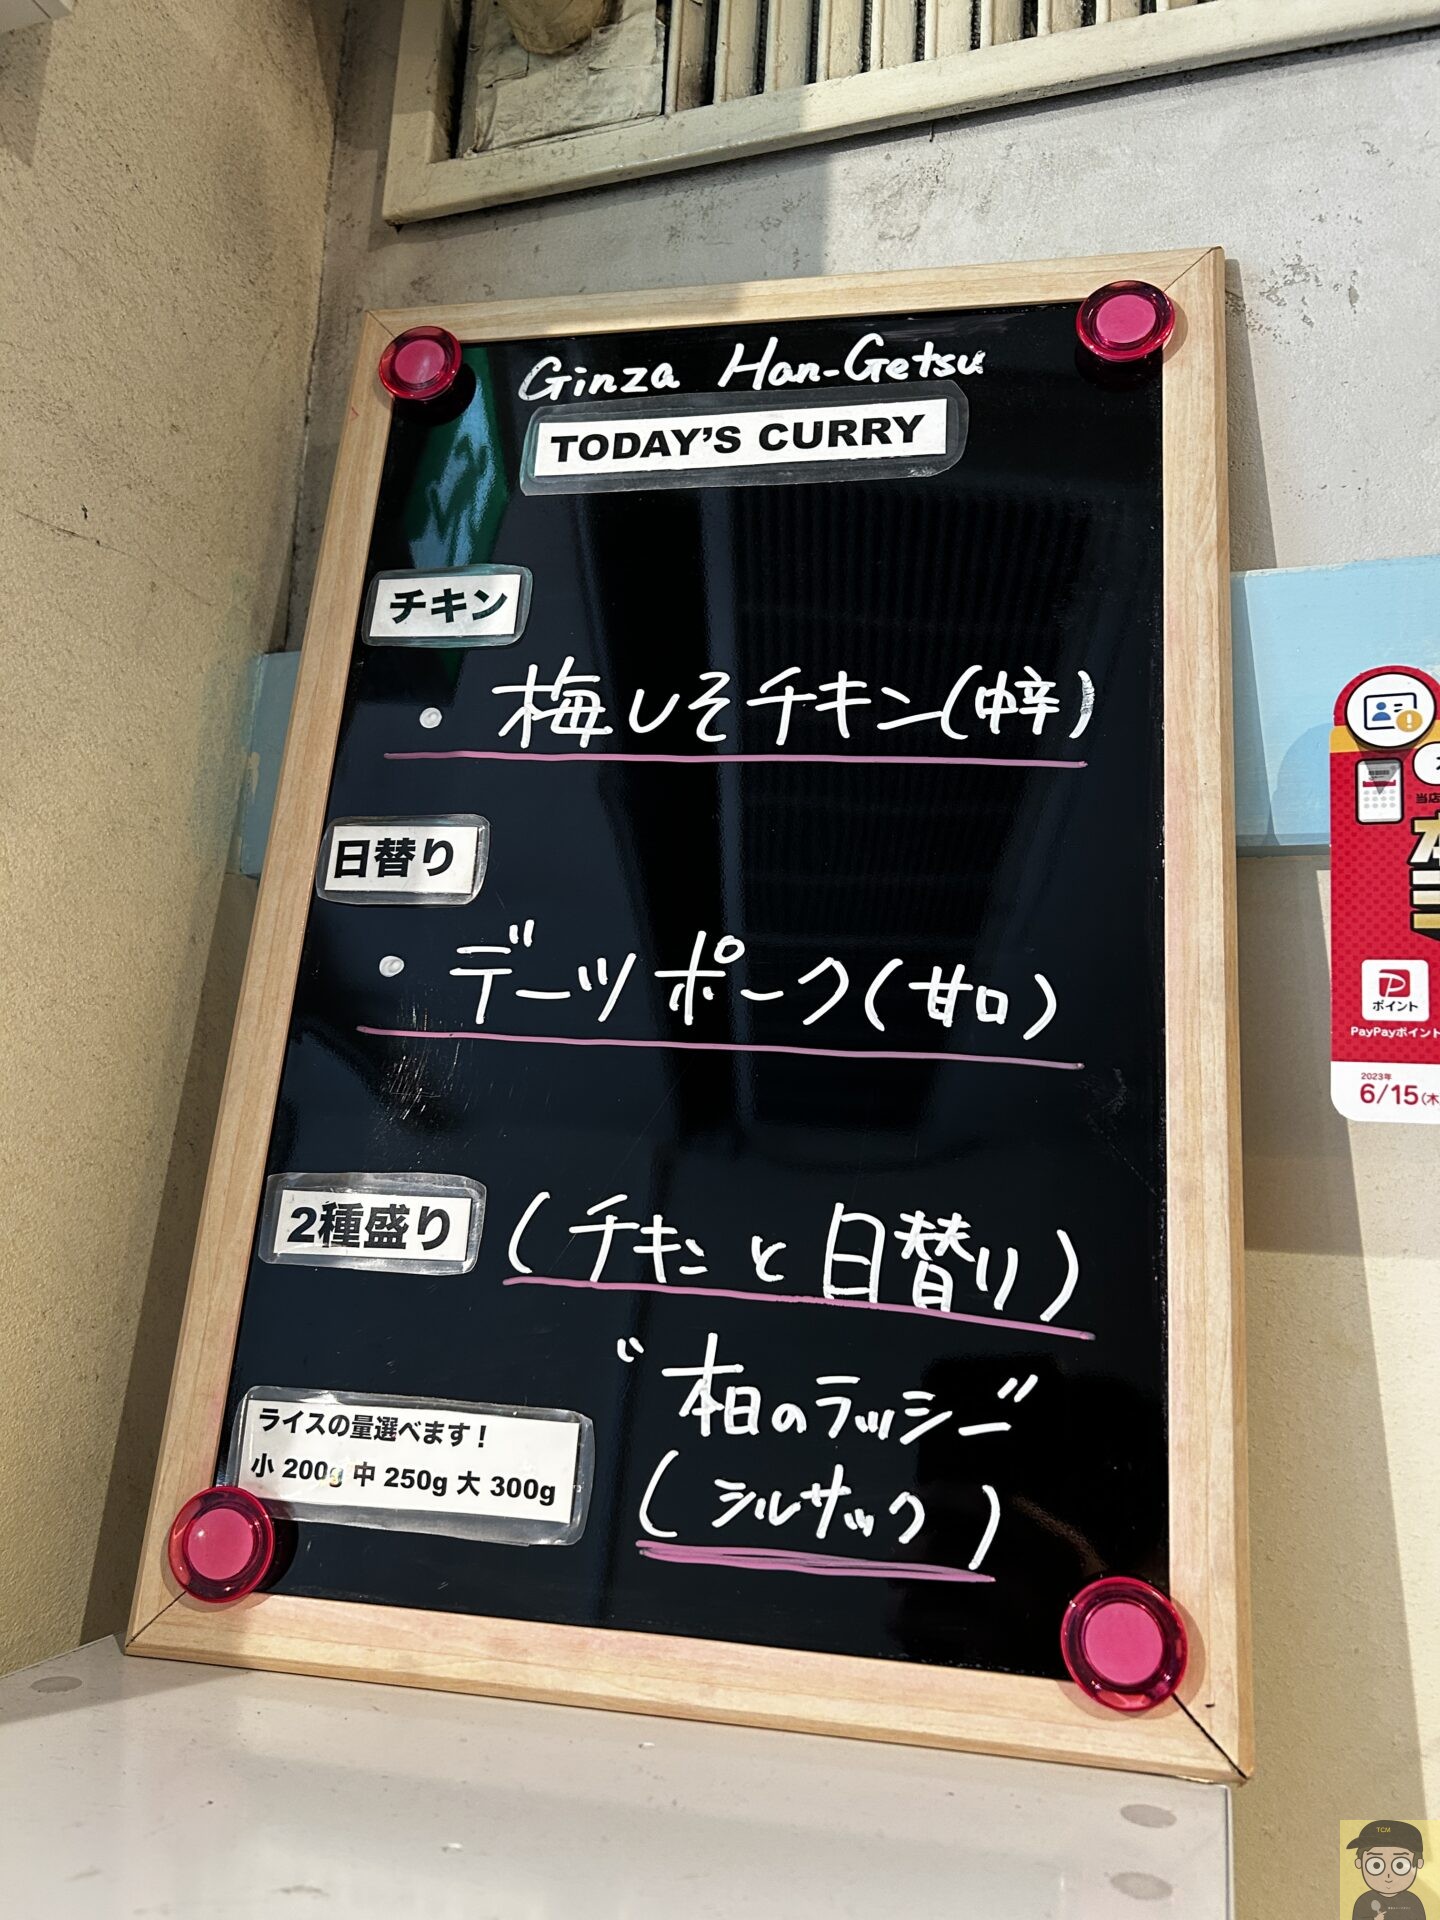 Ginza Han-Getsu
TODAY'S CURRY
チキン
・梅しそチキン(中辛)
日替り
・デーツポーク(甘口)
2種盛り (チキンと日替り)
"本日のラッシー"
(シルサック)
ライスの量選べます!
小 200g 中 250g 大 300g
当店
ポイント
PayPayポイント
2023年
6/15(木
TCM